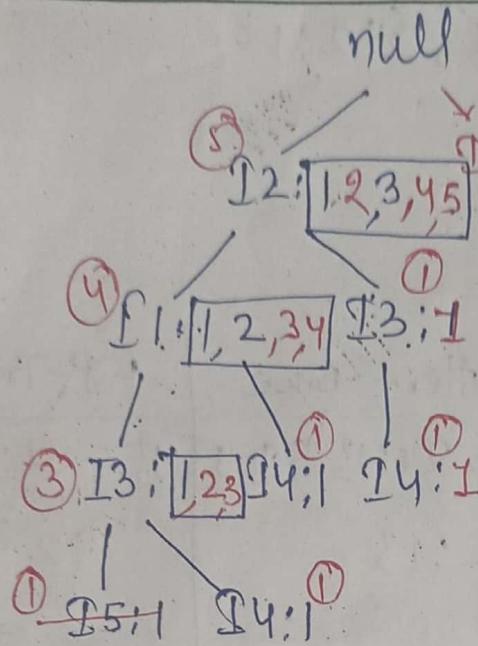 null
5 I
I2: 1 2, 3, 4, 5
4 1
I1: 1, 2, 3, 4 I3: 1
1 1
3 I3: 1, 2, 3 I4: 1 I4: 1
1 1
I5: 1 I4: 1